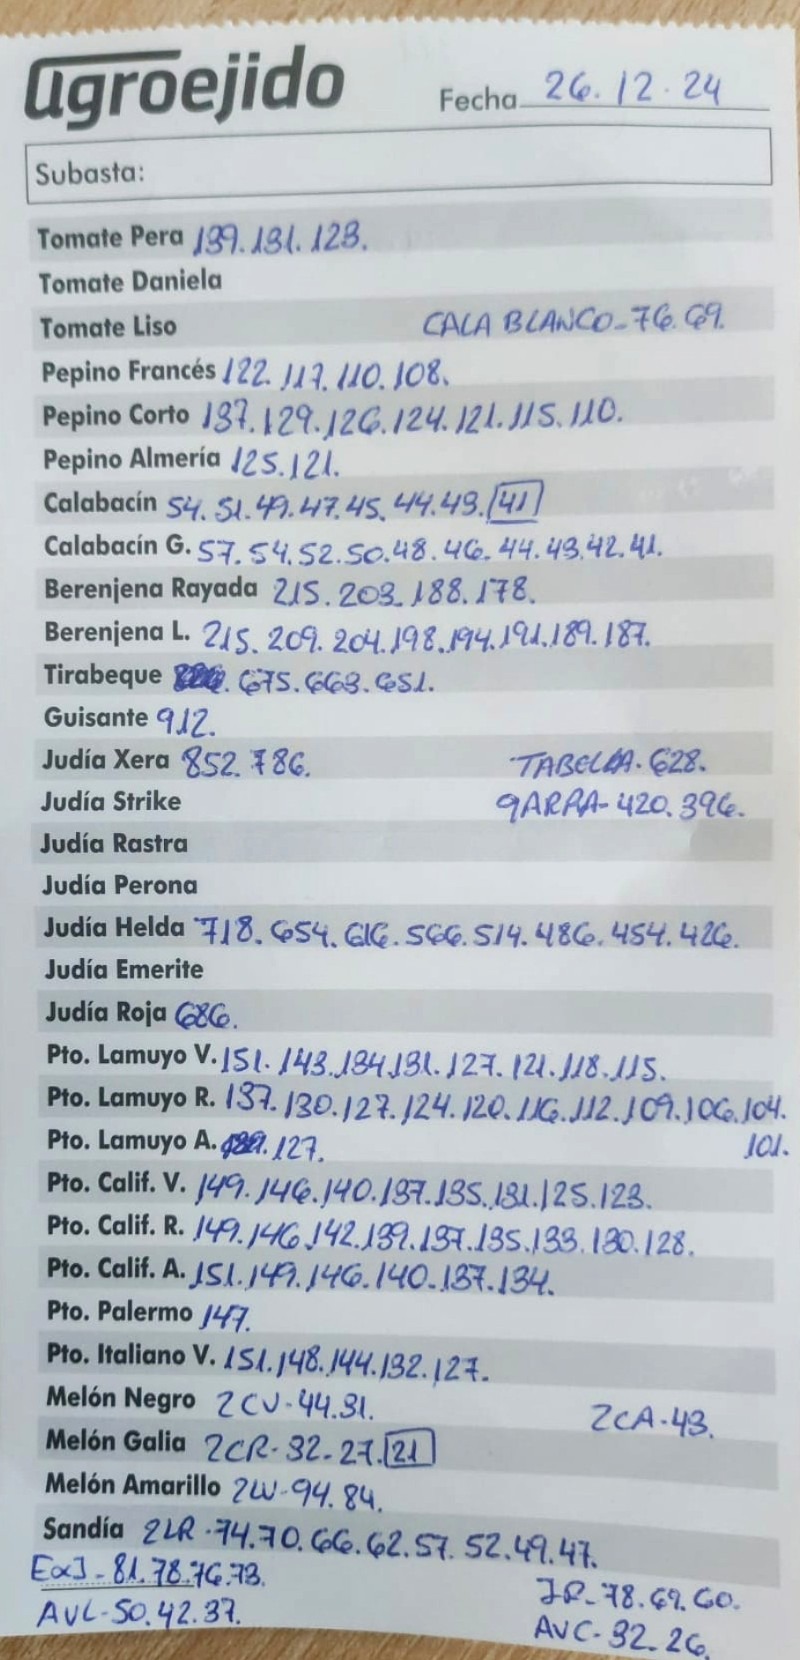 agroejido
Fecha 26.12.24
Subasta:
Tomate Pera 139.131.123.
Tomate Daniela
Tomate Liso CALA BLANCO-76.69.
Pepino Francés 122.117.110.108.
Pepino Corto 137.129.126.124.121.115.110.
Pepino Almería 125.121.
Calabacín 54.51.49.47.45.44.43.41
Calabacín G. 57.54.52.50.48.46.44.43.42.41.
Berenjena Rayada 215.203.188.178.
Berenjena L. 215.209.204.198.194.191.189.187.
Tirabeque 675.663.651.
Guisante 912.
Judía Xera 852.786. TABELLA.628.
Judía Strike GARRA-420.396.
Judía Rastra
Judía Perona
Judía Helda 718.654.616.566.514.486.454.426.
Judía Emerite
Judía Roja 686.
Pto. Lamuyo V. 151.143.134.131.127.121.118.115.
Pto. Lamuyo R. 137.130.127.124.120.116.112.109.106.104.
Pto. Lamuyo A. 127. 101.
Pto. Calif. V. 149.146.140.137.135.131.125.123.
Pto. Calif. R. 149.146.142.139.137.135.133.130.128.
Pto. Calif. A. 151.149.146.140.137.134.
Pto. Palermo 147.
Pto. Italiano V. 151.148.144.132.127.
Melón Negro 2CV-44.31. 2CA-43.
Melón Galia 2CR-32-27.21
Melón Amarillo 2W-94.84.
Sandía 2LR-74.70.66.62.57.52.49.47.
81.78.76.73. 78.69.60.
AVL-50.42.37. AVC-32.26.